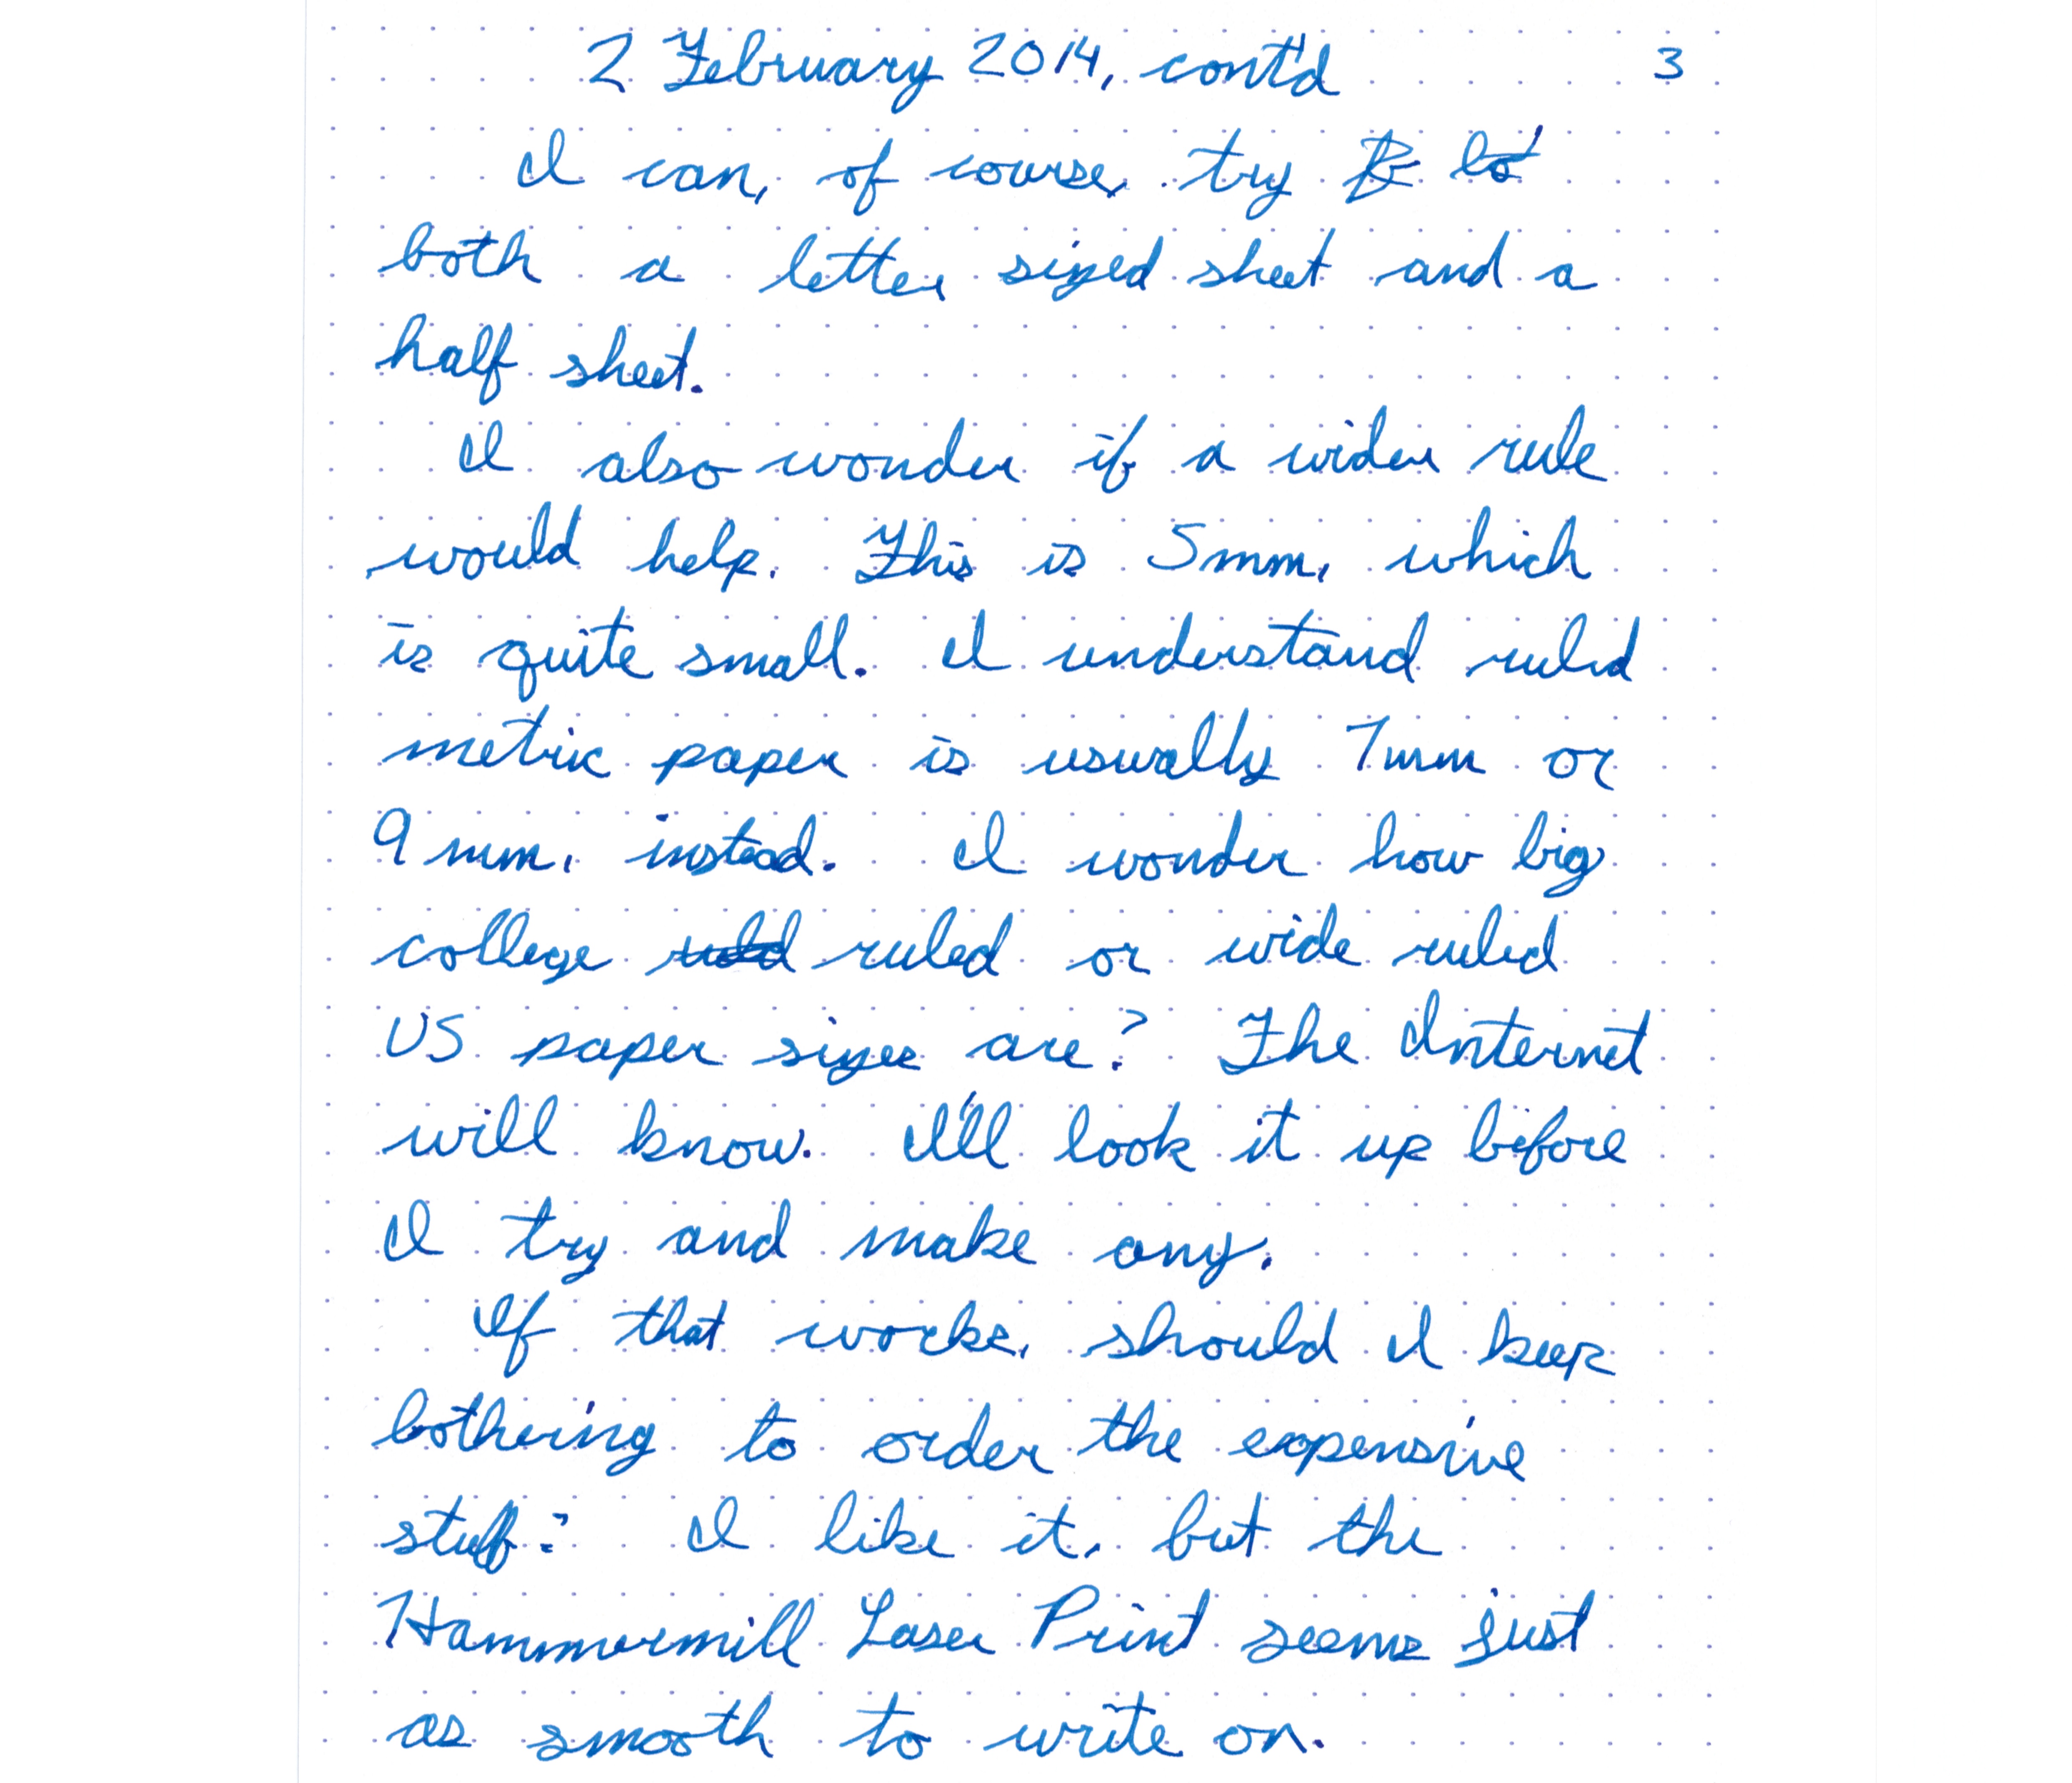 2 February 2014, cont'd 3
I can, of course, try
both a letter sized sheet and a
half sheet.
I also wonder if a wider rule
would help. This is 5mm, which
is quite small. I understand ruled
metric paper is usually 7mm or
9mm, instead. I wonder how big
college ruled ruled or wide ruled
US paper sizes are? The Internet
will know. I'll look it up before
I try and make any.
If that works, should I keep
bothering to order the expensive
stuff? I like it, but the
Hammermill Laser Print seems just
as smooth to write on.